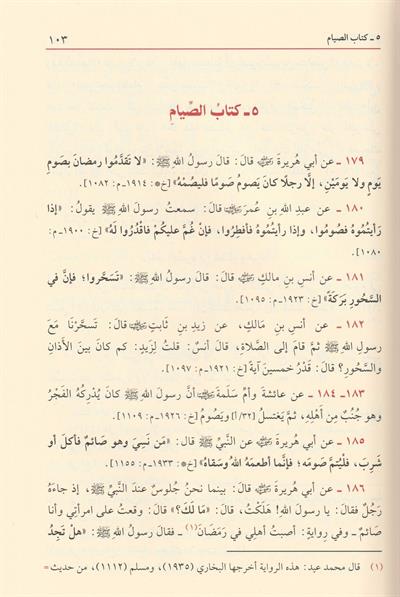 ٥ ـ كتاب الصيام ١٠٣
٥ ـ كتابُ الصِّيامِ
١٧٩ ـ عن أبي هُريرةَ ﵁ قالَ: قالَ رسولُ اللهِ ﷺ: «لا تَقَدَّمُوا رمضانَ بصَومِ
يَومٍ ولا يَومَيْنِ، إلَّا رجلًا كانَ يَصومُ صَومًا فليَصُمْهُ» [خ: ١٩١٤ـ م: ١٠٨٢].
١٨٠ ـ عن عبدِ اللهِ بنِ عُمَرَ ﵄ قالَ: سمعتُ رسولَ اللهِ ﷺ يقولُ: «إذا
رَأيتُمُوهُ فصُومُوا، وإذا رأيتُمُوهُ فأفطِرُوا، فإنْ غُمَّ عليكُمْ فاقْدُرُوا لَهُ» [خ: ١٩٠٠ـ م:
١٠٨٠].
١٨١ ـ عن أنسِ بنِ مالكٍ ﵁ قالَ: قالَ رسولُ اللهِ ﷺ: «تَسَحَّرُوا؛ فإنَّ في
السَّحُورِ بَرَكَةً» [خ: ١٩٢٣ـ م: ١٠٩٥].
١٨٢ ـ عن أنسِ بنِ مَالِكٍ، عن زيدِ بنِ ثابتٍ ﵄ قالَ: تَسَحَّرْنَا مَعَ
رسولِ اللهِ ﷺ ثمَّ قامَ إلى الصَّلاةِ، قالَ أنسٌ: قلتُ لِزَيدٍ: كم كانَ بينَ الأذَانِ
والسَّحُورِ؟ قالَ: قَدْرُ خمسينَ آيةً [خ: ١٩٢١ـ م: ١٠٩٧].
١٨٣ـ ١٨٤ ـ عن عائشةَ وأمِّ سَلَمةَ ﵄ أنَّ رسولَ اللهِ ﷺ كانَ يُدْرِكُهُ الفَجْرُ
وهو جُنُبٌ مِن أهْلِهِ، ثمَّ يَغتسلُ [٣٢/أ] ويَصُومُ [خ: ١٩٢٦ـ م: ١١٠٩].
١٨٥ ـ عن أبي هُريرةَ ﵁ عن النَّبيِّ ﷺ قالَ: «مَن نَسِيَ وهو صَائمٌ فأكلَ أو
شَرِبَ، فلْيُتمَّ صَومَه؛ فإنَّما أطعمَهُ اللهُ وسَقاهُ» [خ: ١٩٣٣ـ م: ١١٥٥].
١٨٦ ـ عن أبي هُريرةَ ﵁ قالَ: بينما نحنُ جُلوسٌ عندَ النَّبيِّ ﷺ، إذ جاءَهُ
رَجُلٌ فقالَ: يا رسولَ اللهِ! هَلَكْتُ، قالَ: «مَا لَكَ؟» قالَ: وقعتُ على امرأتِي وأنا
صَائمٌ ـ وفي روايةٍ: أصبتُ أهلِي في رَمَضَانَ(١) ـ فقالَ رسولُ اللهِ ﷺ: «هلْ تَجِدُ
(١) قال محمد عيد: هذه الرواية أخرجها البخاري (١٩٣٥)، ومسلم (١١١٢)، من حديث =